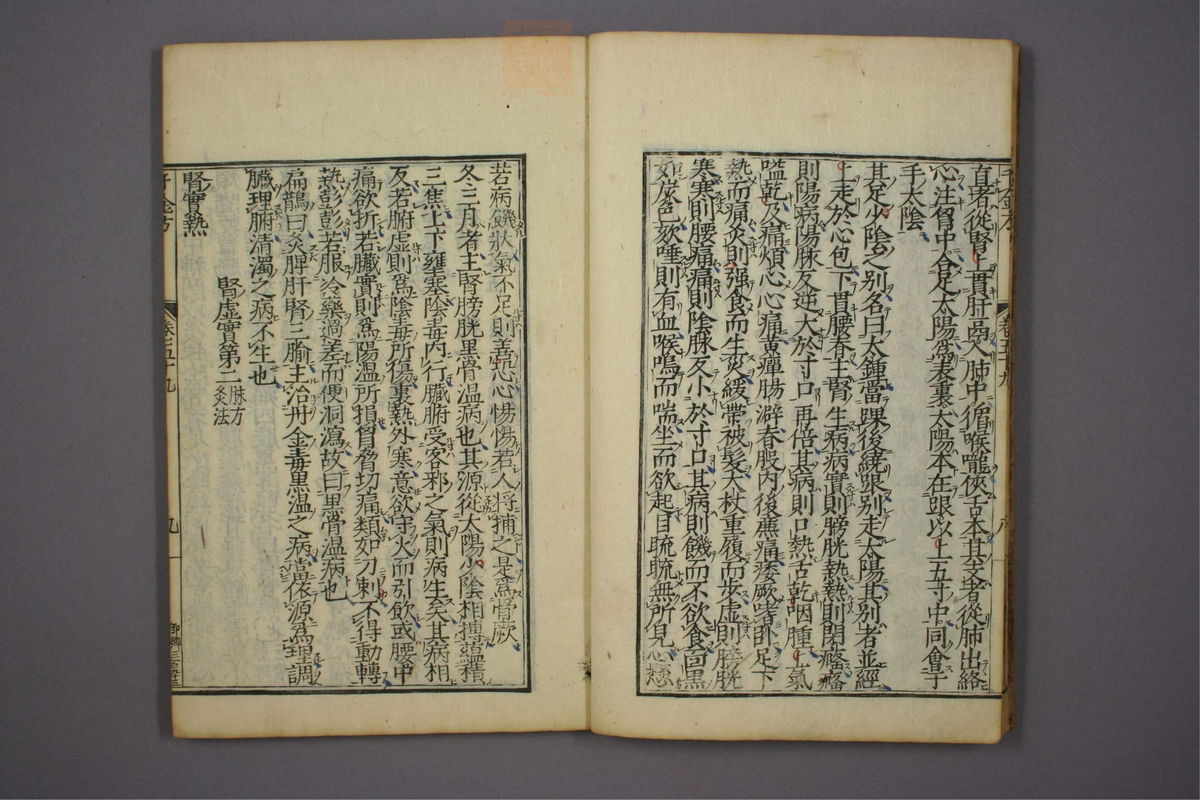 直者從腎上貫肝鬲入肺中循喉嚨俠舌本其支者從肺出絡
心注胷中合足太陽爲表裏太陽本在跟以上五寸中同會于
手太陰
其足少陰之別名曰大鍾當踝後繞跟別走太陽其別者並經
上走於心包下貫腰脊主腎生病病實則膀胱熱熱則閉癃癃
則陽病陽脉反逆大於寸口再倍其病則口熱舌乾咽腫上氣
嗌乾及痛煩心心痛黃癉腸澼脊股內後廉痛痿厥嗜卧足下
熱而痛灸則强食而生灸緩帶被髮大杖重履而步虛則膀胱
寒寒則腰痛痛則陰脉反小於寸口其病則饑而不欲食面黑
如炭色欬唾則有血喉鳴而喘坐而欲起目䀮䀮無所見心懸
若病饑狀氣不足則善恐心惕惕若人將捕之是爲骨厥
冬三月者主腎膀胱黑骨溫病也其源從太陽少陰相搏蘊積
三焦上下壅塞陰毒內行臟腑受客邪之氣則病生矣其病相
反若腑虛則爲陰毒所傷裏熱外寒意欲守火而引飲或腰中
痛欲折若臟實則爲陽溫所損胷脅切痛類如刀刺不得動轉
熱彭彭若服冷藥過差而便洞瀉故曰黑骨溫病也
扁鵲曰灸脾肝腎三腧主治丹金毒黑溫之病當依源爲理調
臟理腑清濁之病不生也
腎虛實第二 脉方 灸法
腎實熱